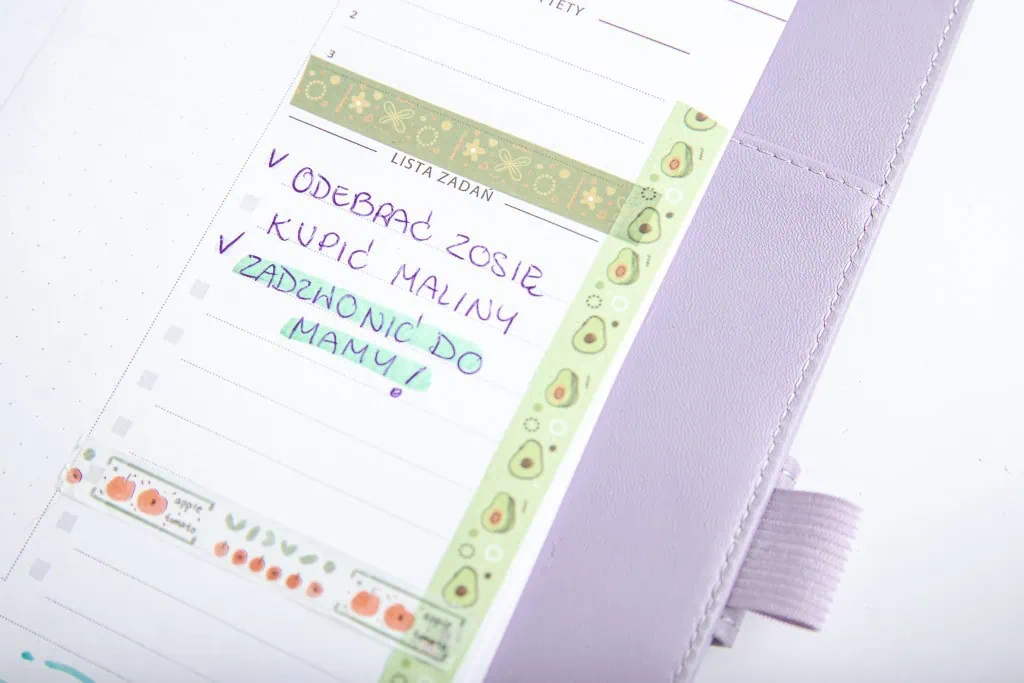 2
3
LISTA ZADAŃ
V ODEBRAĆ ZOSIĘ
KUPIĆ MALINY
V ZADZWONIĆ DO
MAMY!
apple
tomato
apple
tomato